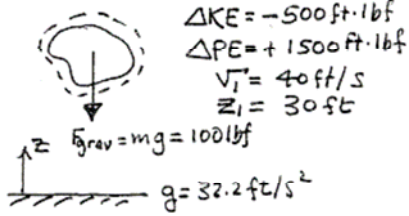 ΔKE = -500 ft·lbf
ΔPE = + 1500 ft·lbf
V₁ = 40 ft/s
z₁ = 30 ft
z Fgrav = mg = 100 lbf
g = 32.2 ft/s²